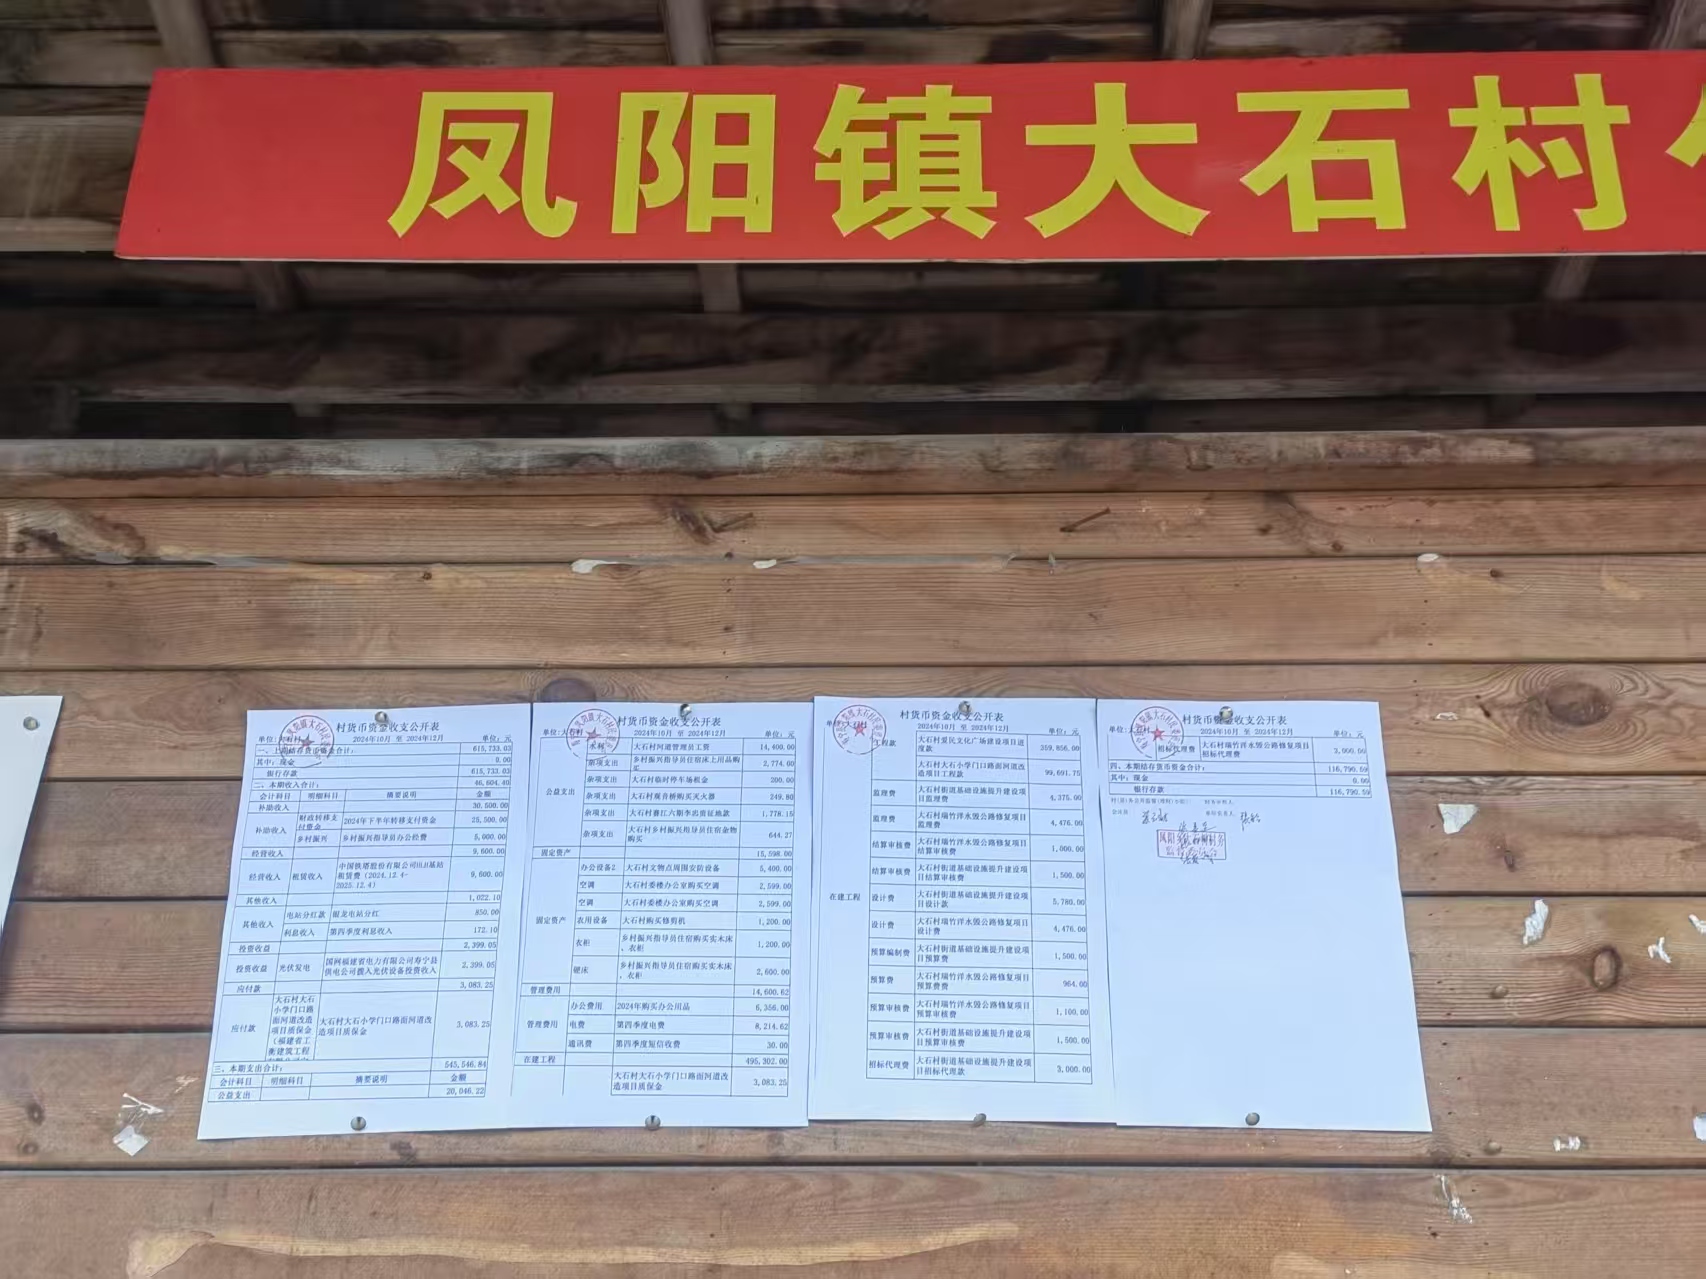 凤阳镇大石村
村货币资金收支公开表
单位:大石村 2024年10月 至 2024年12月 单位:元
一、上期结存货币资金合计: 615,733.03
其中:现金 0.00
银行存款 615,733.03
二、本期收入合计: 46,604.40
会计科目 明细科目 摘要说明 金额
补助收入 30,500.00
补助收入 财政转移支付资金 2024年下半年转移支付资金 25,500.00
乡村振兴 乡村振兴指导员办公经费 5,000.00
经营收入 9,600.00
经营收入 租赁收入 中国铁塔股份有限公司 基站租赁费(2024.12.4-2025.12.4) 9,600.00
其他收入 1,022.10
其他收入 电站分红款 银龙电站分红 850.00
利息收入 第四季度利息收入 172.10
投资收益 2,399.05
投资收益 光伏发电 国网福建省电力有限公司寿宁县供电公司拨入光伏设备投资收入 2,399.05
应付款 3,083.25
应付款 大石村大石小学门口路面河道改造项目质保金(福建省工衡建筑工程 大石村大石小学门口路面河道改造项目质保金 3,083.25
三、本期支出合计: 545,546.84
会计科目 明细科目 摘要说明 金额
公益支出 20,046.22
村货币资金收支公开表
单位:大石村 2024年10月 至 2024年12月 单位:元
公益支出 水利 大石村河道管理员工资 14,400.00
杂项支出 乡村振兴指导员住宿床上用品购买 2,774.00
杂项支出 大石村临时停车场租金 200.00
杂项支出 大石村观音桥购买灭火器 249.80
杂项支出 大石村 六期李出资征地款 1,778.15
杂项支出 大石村乡村振兴指导员住宿杂物购买 644.27
固定资产 15,598.00
固定资产 办公设备2. 大石村文物点周围安防设备 5,400.00
空调 大石村委楼办公室购买空调 2,599.00
空调 大石村委楼办公室购买空调 2,599.00
农用设备 大石村购买修剪机 1,200.00
衣柜 乡村振兴指导员住宿购买实木床、衣柜 1,200.00
硬床 乡村振兴指导员住宿购买实木床、衣柜 2,600.00
管理费用 14,600.62
管理费用 办公费用 2024年购买办公用品 6,356.00
电费 第四季度电费 8,214.62
通讯费 第四季度短信收费 30.00
在建工程 495,302.00
大石村大石小学门口路面河道改造项目质保金 3,083.25
村货币资金收支公开表
单位:大石村 2024年10月 至 2024年12月 单位:元
在建工程 工程款 大石村爱民文化广场建设项目进度款 359,856.00
大石村大石小学门口路面河道改造项目工程款 99,691.75
监理费 大石村街道基础设施提升建设项目监理费 4,375.00
监理费 大石村瑞竹洋水毁公路修复项目监理费 4,476.00
结算审核费 大石村瑞竹洋水毁公路修复项目结算审核费 1,000.00
结算审核费 大石村街道基础设施提升建设项目结算审核费 1,500.00
设计费 大石村街道基础设施提升建设项目设计款 5,780.00
设计费 大石村瑞竹洋水毁公路修复项目设计费 4,476.00
预算编制费 大石村街道基础设施提升建设项目预算费 1,500.00
预算费 大石村瑞竹洋水毁公路修复项目预算费费 964.00
预算审核费 大石村瑞竹洋水毁公路修复项目预算审核费 1,100.00
预算审核费 大石村街道基础设施提升建设项目预算审核费 1,500.00
招标代理费 大石村街道基础设施提升建设项目招标代理款 3,000.00
村货币资金收支公开表
单位:大石村 2024年10月 至 2024年12月 单位:元
招标代理费 大石村瑞竹洋水毁公路修复项目招标代理费 3,000.00
四、本期结存货币资金合计: 116,790.59
其中:现金 0.00
银行存款 116,790.59